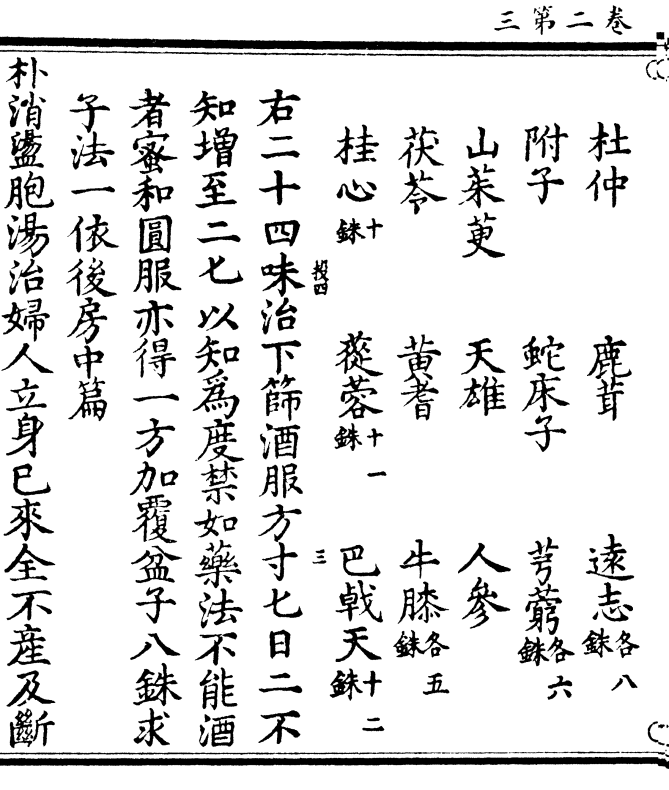 卷二第三
杜仲　鹿茸　遠志各八銖
附子　蛇床子　芎藭各六銖
山茱萸　天雄　人參
茯苓　黃耆　牛膝各五銖
桂心十銖　蓯蓉十一銖　巴戟天十二銖
投四　三
右二十四味治下篩酒服方寸匕日二不
知增至二匕以知爲度禁如藥法不能酒
者蜜和圓服亦得一方加覆盆子八銖求
子法一依後房中篇
朴消盪胞湯治婦人立身已來全不產及斷